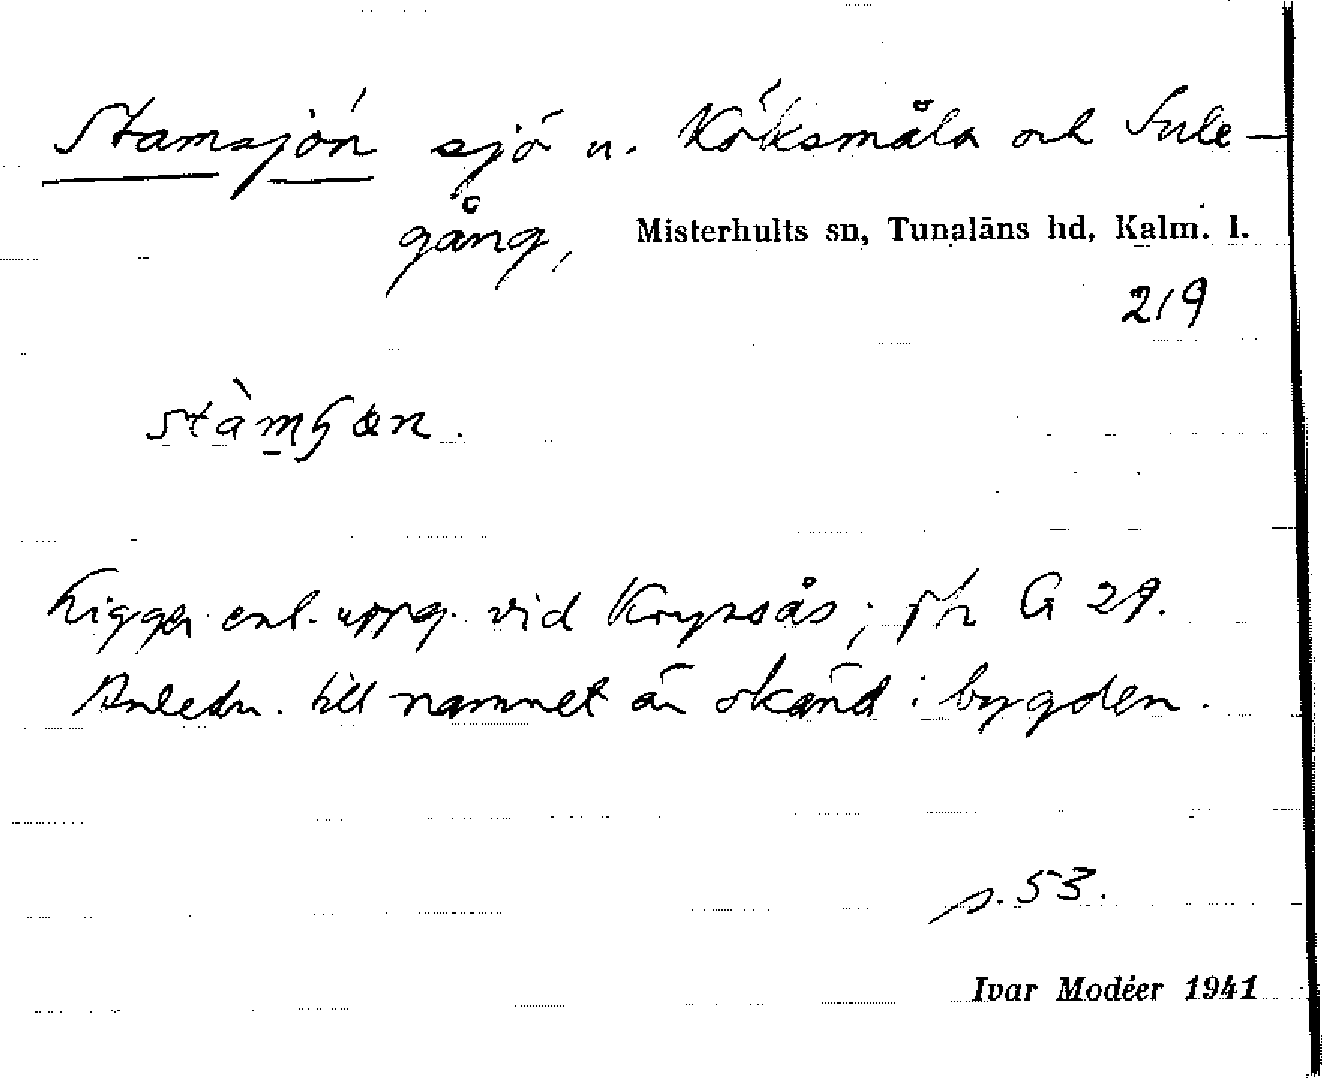 Stamsjön sjö u. Köksmåla och Sule-
gång,
Misterhults sn, Tunaläns hd, Kalm. l.
219
Ligger enl. uppg. vid Krypsås; G 29.
Anledn. till namnet är okänd i bygden.
s. 53.
Ivar Modéer 1941